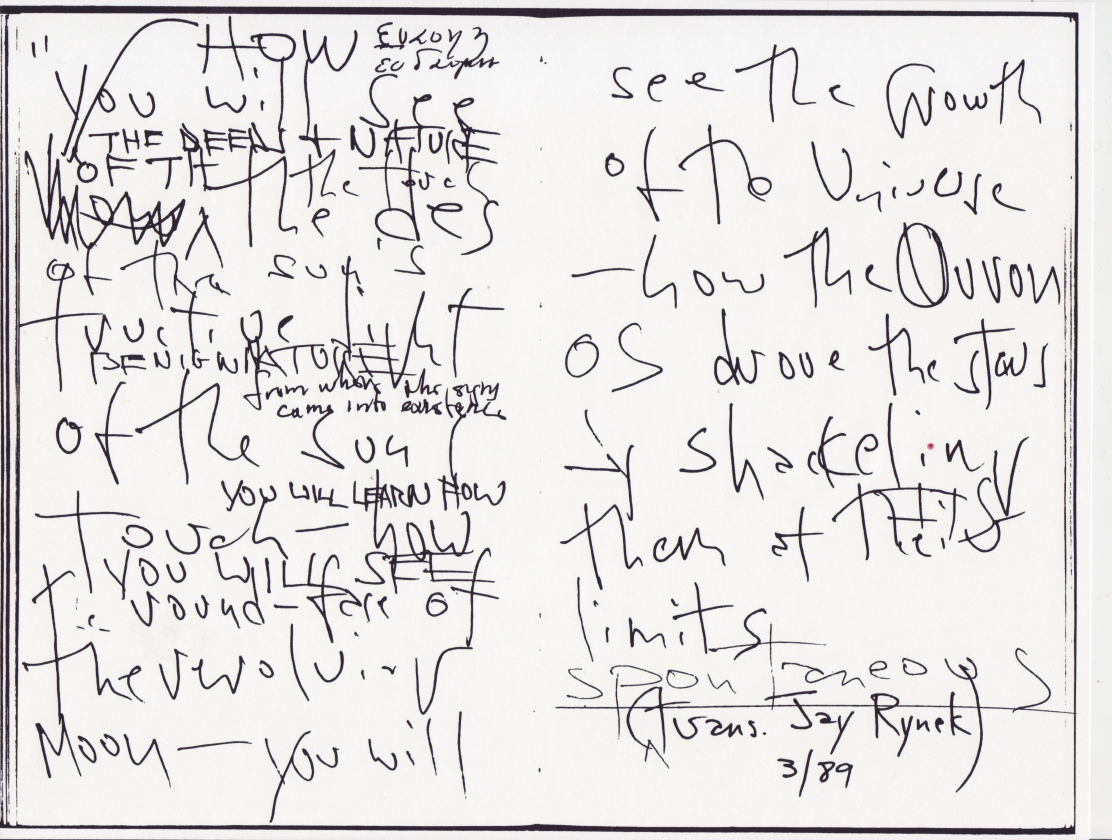 "
HOW
YOU will See
THE DEEDS + NATURE
OF THE
the
the des
of the sun's
BENIGN NATURE
from whom the signs
came into existence
of the Sun
YOU WILL LEARN HOW
Touch — HOW
YOU WILL SEE
round-face of
The revolving
Moon — you will
see the Growth
of the Universe
— how the Ouron
os drove the stars
by shackeling
them at their
limits
spontaneous
(trans. Jay Rynek)
3/89